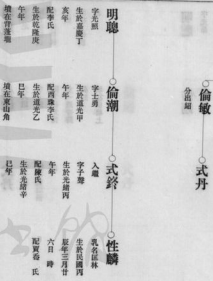 倫敏
分出紹
式丹
明聰
字光照
生於嘉慶丁
亥年
配李氏
生於乾隆庚
午年
墳在背蓬壟
倫潮
字士勇
生於道光甲
午年
配西珠李氏
生於道光乙
巳年
墳在東山角
式終
入繼
字子聲
生於光緒丙
午年
配陳氏
生於光緒辛
巳年
性麟
乳名匡林
生於民國丙
辰年三月廿
六日 時
配賈畚 氏